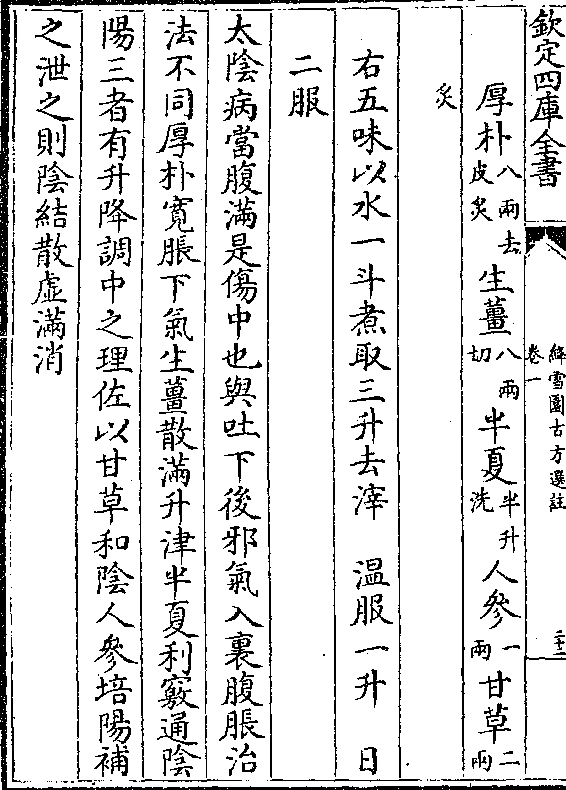 欽定四庫全書
絳雪園古方選註
卷一
二十二
厚朴八兩去皮炙 生薑八兩切 半夏半升洗 人參一兩 甘草二兩
炙
右五味以水一斗煮取三升去滓 温服一升 日
二服
太陰病當腹滿是傷中也與吐下後邪氣入裏腹脹治
法不同厚朴寬脹下氣生薑散滿升津半夏利竅通陰
陽三者有升降調中之理佐以甘草和陰人參培陽補
之泄之則陰結散虛滿消